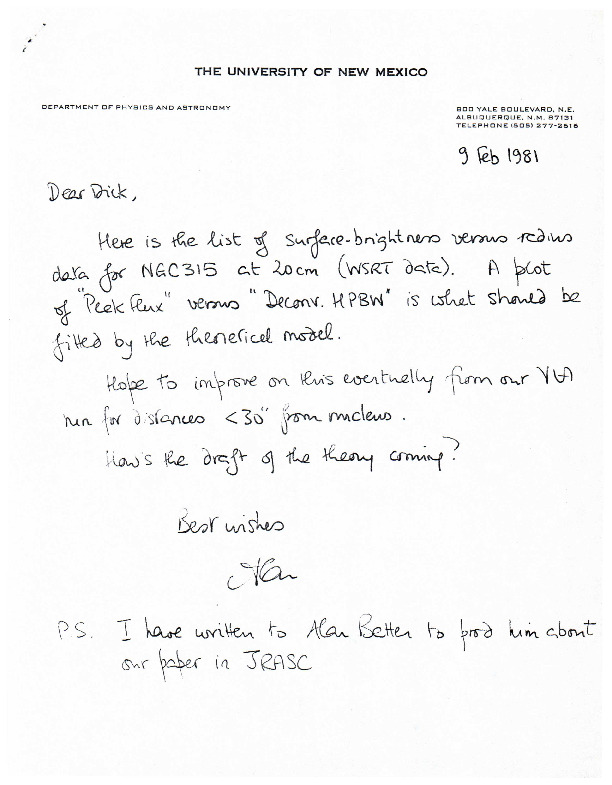 THE UNIVERSITY OF NEW MEXICO
DEPARTMENT OF PHYSICS AND ASTRONOMY
800 YALE BOULEVARD, N.E.
ALBUQUERQUE, N.M. 87131
TELEPHONE (505) 277-2616
9 Feb 1981
Dear Dick,
Here is the list of surface-brightness versus radius
data for NGC315 at 20cm (WSRT data). A plot
of "Peak flux" versus "Deconv. HPBW" is what should be
fitted by the theoretical model.
Hope to improve on this eventually from our VLA
run for distances <30" from nucleus.
How's the draft of the theory coming?
Best wishes
Alan
P.S. I have written to Alan Batten to prod him about
our paper in JRASC